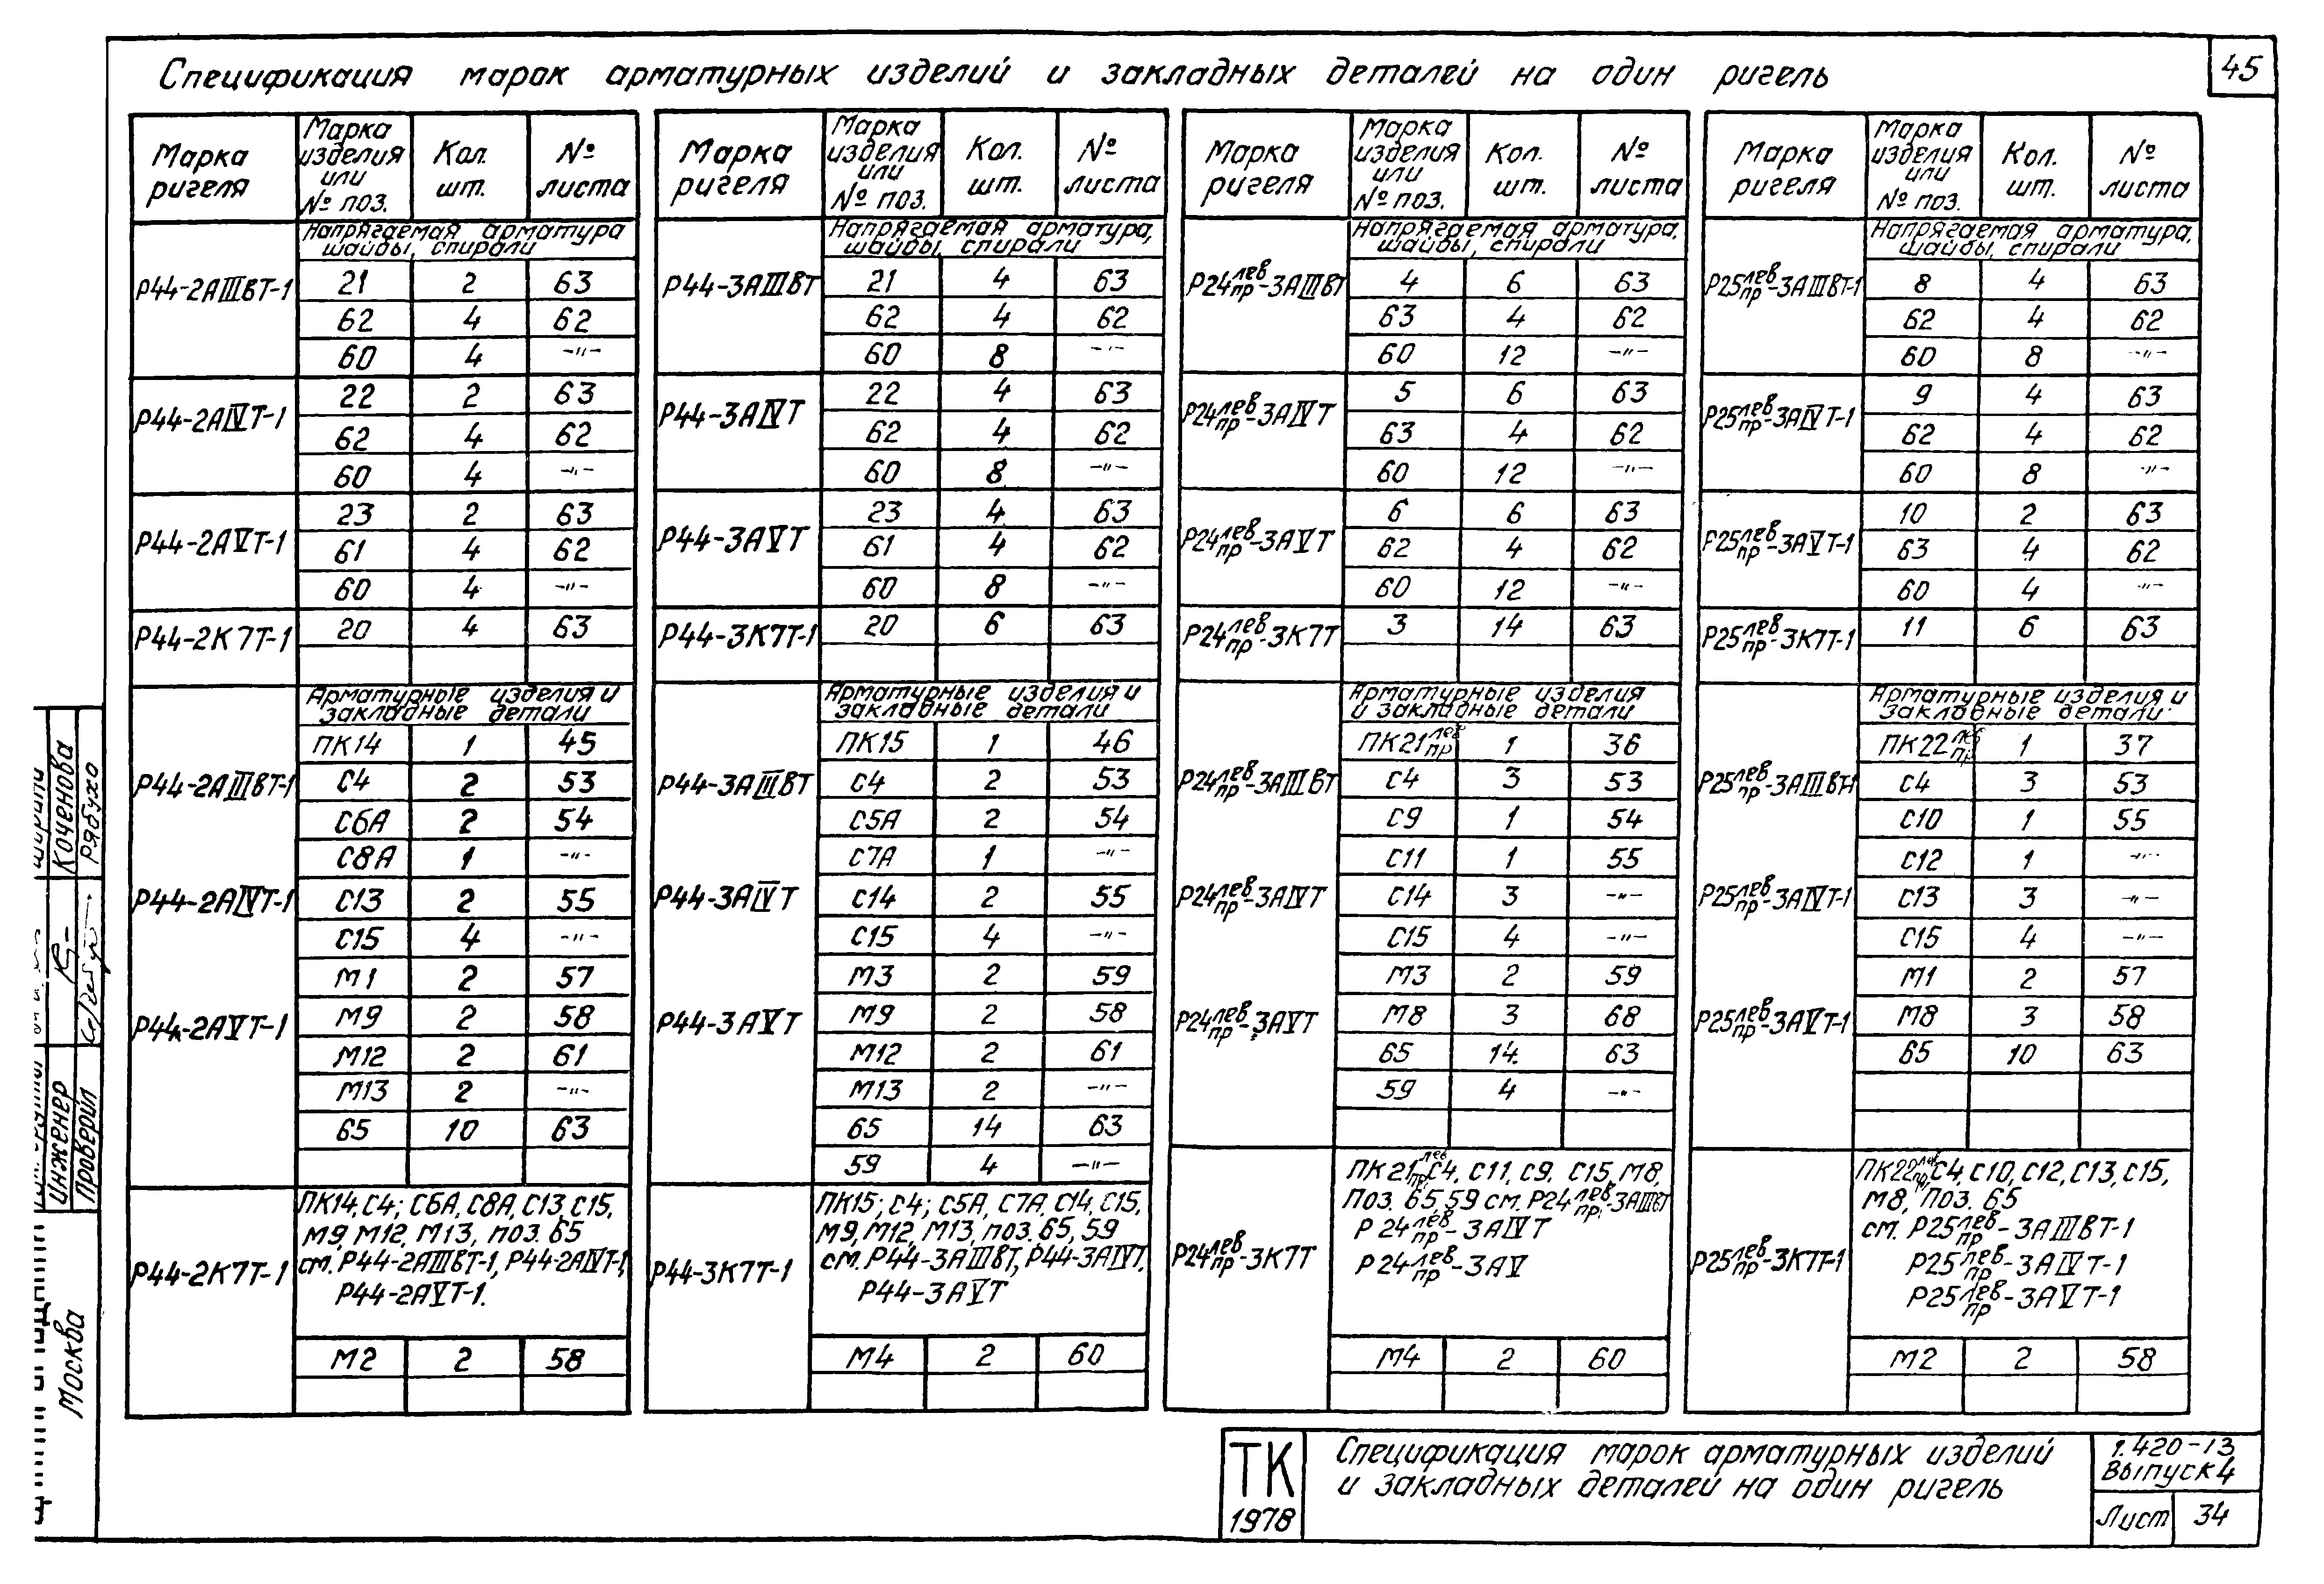 45
Спецификация марок арматурных изделий и закладных деталей на один ригель
Марка ригеля | Марка изделия или № поз. | Кол. шт. | № листа
Напрягаемая арматура шайбы, спирали
Р44-2АIIIВТ-1 | 21 | 2 | 63
62 | 4 | 62
60 | 4 | -"-
Р44-2АIVТ-1 | 22 | 2 | 63
62 | 4 | 62
60 | 4 | -"-
Р44-2АVТ-1 | 23 | 2 | 63
61 | 4 | 62
60 | 4 | -"-
Р44-2К7Т-1 | 20 | 4 | 63
Арматурные изделия и закладные детали
ПК14 | 1 | 45
Р44-2АIIIВТ-1 | С4 | 2 | 53
С6А | 2 | 54
С8А | 1 | -"-
Р44-2АIVТ-1 | С13 | 2 | 55
С15 | 4 | -"-
М1 | 2 | 57
Р44-2АVТ-1 | М9 | 2 | 58
М12 | 2 | 61
М13 | 2 | -"-
65 | 10 | 63
ПК14, С4; С6А, С8А, С13, С15,
М9, М12, М13, поз. 65
Р44-2К7Т-1 | см. Р44-2АIIIВТ-1, Р44-2АIVТ-1,
Р44-2АVТ-1.
М2 | 2 | 58
Марка ригеля | Марка изделия или № поз. | Кол. шт. | № листа
Напрягаемая арматура, шайбы, спирали
Р44-3АIIIВТ | 21 | 4 | 63
62 | 4 | 62
60 | 8 | -"-
Р44-3АIVТ | 22 | 4 | 63
62 | 4 | 62
60 | 8 | -"-
Р44-3АVТ | 23 | 4 | 63
61 | 4 | 62
60 | 8 | -"-
Р44-3К7Т-1 | 20 | 6 | 63
Арматурные изделия и закладные детали
ПК15 | 1 | 46
Р44-3АIIIВТ | С4 | 2 | 53
С5А | 2 | 54
С7А | 1 | -"-
Р44-3АIVТ | С14 | 2 | 55
С15 | 4 | -"-
М3 | 2 | 59
Р44-3АVТ | М9 | 2 | 58
М12 | 2 | 61
М13 | 2 | -"-
65 | 14 | 63
59 | 4 | -"-
ПК15; С4; С5А, С7А, С14, С15,
М9, М12, М13, поз. 65, 59
Р44-3К7Т-1 | см. Р44-3АIIIВТ, Р44-3АIVТ,
Р44-3АVТ
М4 | 2 | 60
Марка ригеля | Марка изделия или № поз. | Кол. шт. | № листа
Напрягаемая арматура, шайбы, спирали
Р24лев/пр-3АIIIВТ | 4 | 6 | 63
63 | 4 | 62
60 | 12 | -"-
Р24лев/пр-3АIVТ | 5 | 6 | 63
63 | 4 | 62
60 | 12 | -"-
Р24лев/пр-3АVТ | 6 | 6 | 63
62 | 4 | 62
60 | 12 | -"-
Р24лев/пр-3К7Т | 3 | 14 | 63
Арматурные изделия и закладные детали
ПК21лев/пр | 1 | 36
Р24лев/пр-3АIIIВТ | С4 | 3 | 53
С9 | 1 | 54
С11 | 1 | 55
Р24лев/пр-3АIVТ | С14 | 3 | -"-
С15 | 4 | -"-
М3 | 2 | 59
Р24лев/пр-3АVТ | М8 | 3 | 68
65 | 14. | 63
59 | 4 | -"-
ПК21лев/пр, С4, С11, С9, С15, М8,
Поз. 65, 59 см. Р24лев/пр-3АIIIВТ
Р24лев/пр-3АIVТ
Р24лев/пр-3К7Т | Р24лев/пр-3АV
М4 | 2 | 60
Марка ригеля | Марка изделия или № поз. | Кол. шт. | № листа
Напрягаемая арматура, шайбы, спирали
Р25лев/пр-3АIIIВТ-1 | 8 | 4 | 63
62 | 4 | 62
60 | 8 | -"-
Р25лев/пр-3АIVТ-1 | 9 | 4 | 63
62 | 4 | 62
60 | 8 | -"-
Р25лев/пр-3АVТ-1 | 10 | 2 | 63
63 | 4 | 62
60 | 4 | -"-
Р25лев/пр-3К7Т-1 | 11 | 6 | 63
Арматурные изделия и закладные детали
ПК22лев/пр | 1 | 37
Р25лев/пр-3АIIIВТ-1 | С4 | 3 | 53
С10 | 1 | 55
С12 | 1 | -"-
Р25лев/пр-3АIVТ-1 | С13 | 3 | -"-
С15 | 4 | -"-
М1 | 2 | 57
Р25лев/пр-3АVТ-1 | М8 | 3 | 58
65 | 10 | 63
ПК22лев/пр, С4, С10, С12, С13, С15,
М8, поз. 65
см. Р25лев/пр-3АIIIВТ-1
Р25лев/пр-3К7Т-1 | Р25лев/пр-3АIVТ-1
Р25лев/пр-3АVТ-1
М2 | 2 | 58
Коченова
Рябуха
Инженер
Проверил
Москва
ТК
1978
Спецификация марок арматурных изделий
и закладных деталей на один ригель
1.420-13
Выпуск 4
Лист 34